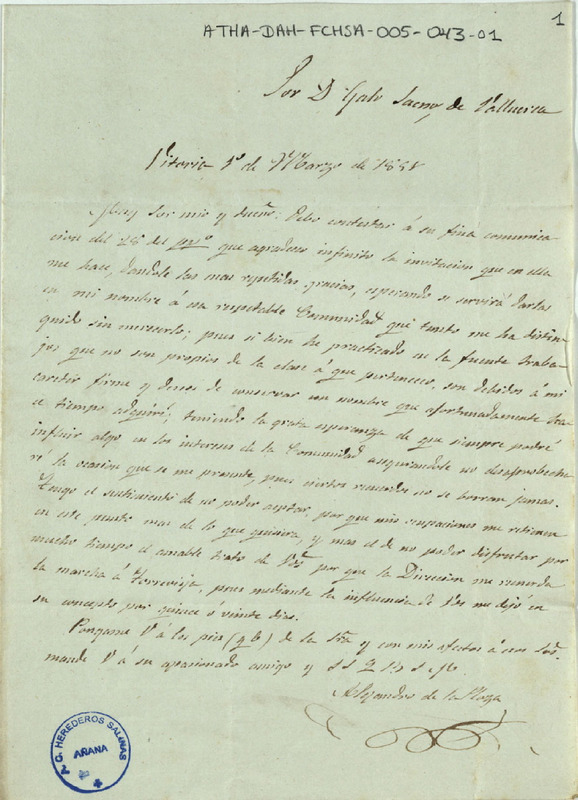 1
ATHA-DAH-FCHSA-005-043-01
Sor D Galo Saenz de Valluerca
Vitoria 1º de Marzo de 185
Muy Sor mio y dueño: Debo contestar á su fina comunica
cion del 28 del que agradezco infinito la invitacion que en ella
me hace, dandole las mas repetidas gracias, esperando se servirá darlas
en mi nombre á esa respetable Comunidad que tanto me ha distin
guido sin merecerlo; pues si bien he practicado en la fuente traba
jos que no son propios de la clase á que pertenezco, son debidos á mi
caracter firme y deseos de conservar un nombre que afortunadamente hace
tiempo adquirí; teniendo la grata esperanza de que siempre podré
influir algo en los intereses de la Comunidad asegurandole no desaprobecha
ré la ocasion que se me presente, pues ciertos recuerdos no se borran jamas.
Tengo el sentimiento de no poder aceptar, por que mis ocupaciones me retienen
en este punto mas de lo que quisiera, y mas el de no poder disfrutar por
mucho tiempo el amable trato de Vds por que la Dirección me recuerda
la marcha á Torrevieja, pues mediante la influencia de me dejó en
su concepto por quince ó veinte dias.
Pongame V á los pies (q b) de la Sra y con mis afectos á esos Sres
mande V á su apasionado amigo y S S Q B S M
Alejandro de la
A. G. HEREDEROS SALINAS
AÑANA